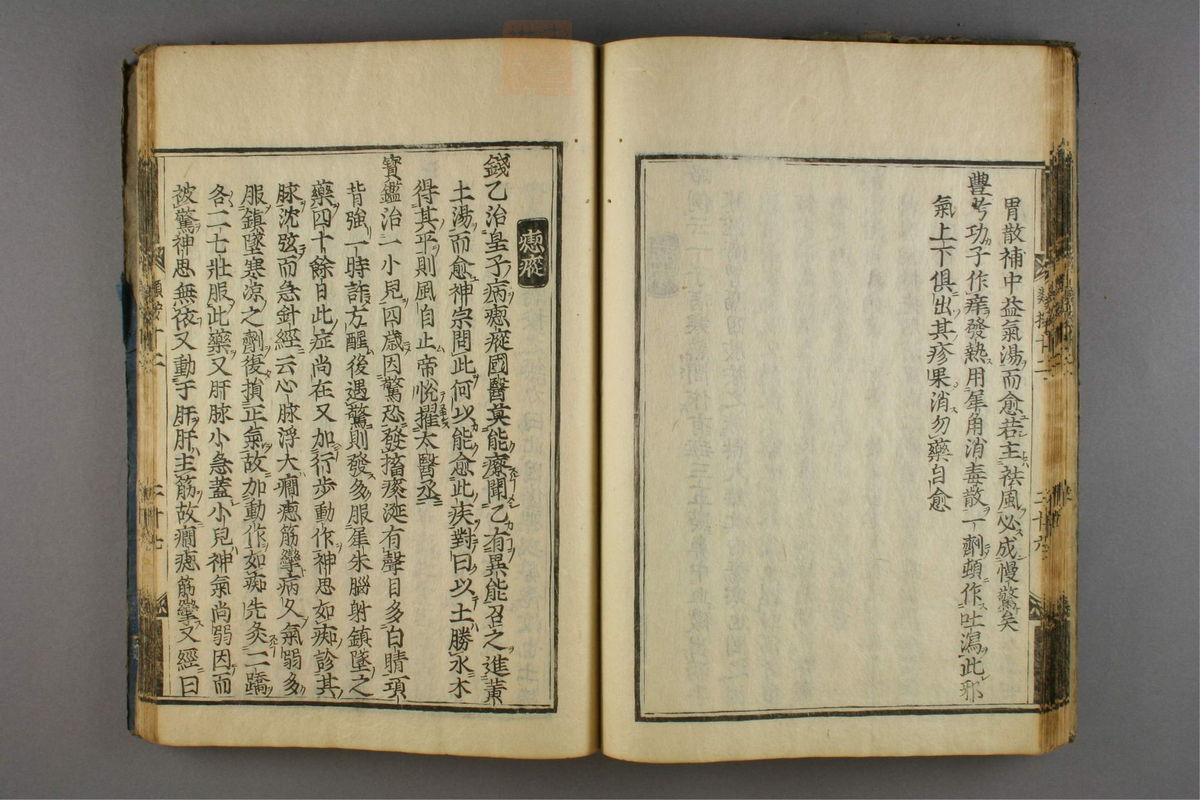 胃散補中益氣湯而愈若主祛風必成慢驚矣
豐兮功子作痒發熱用犀角消毒散一劑頓作吐瀉此邪
氣上下俱出其疹果消勿藥自愈
瘛瘲
錢乙治皇子病瘛瘲國醫莫能療聞乙有異能召之進黃
土湯而愈神宗問此何以能愈此疾對曰以土勝水木
得其平則風自止帝悅擢太醫丞
寶鑑治一小兒四歲因驚恐發搐痰涎有聲目多白睛項
背強一時許方醒後遇驚則發多服犀朱腦射鎮墜之
藥四十餘日此症尚在又加行步動作神思如痴診其
脉沈弦而急針經云心脉浮大癇瘛筋攣病久氣弱多
服鎮墜寒凉之劑復損正氣故加動作如痴先灸二蹻
各二七壯服此藥又肝脉小急蓋小兒神氣尚弱因而
被驚神思無依又動于肝肝主筋故癇瘛筋攣又經曰
類按十二
二十七